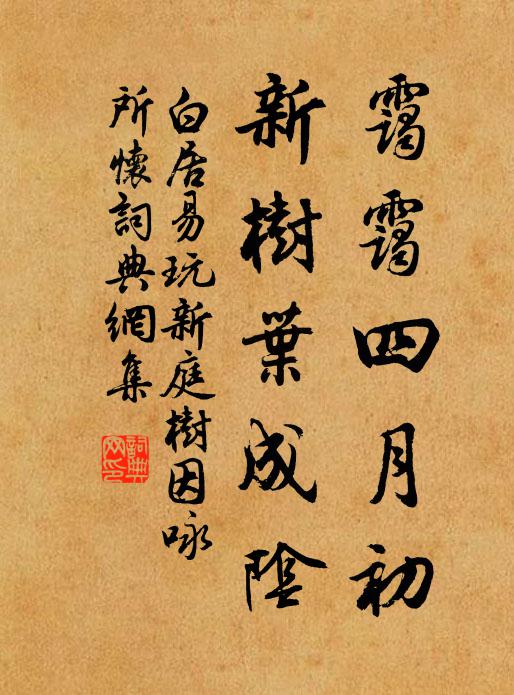 靄靄四月初
新樹葉成陰
白居易玩新庭樹因咏
所懷詞典網集
詞典网印